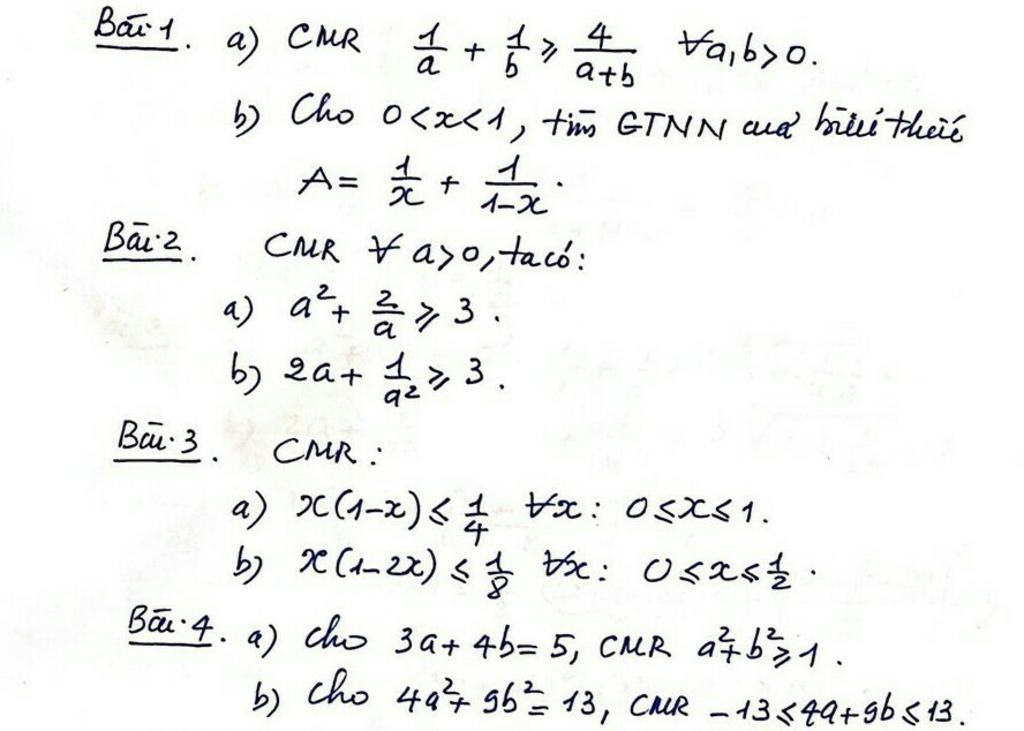 Bài 1. a) CMR 1/a + 1/b ≥ 4/(a+b) ∀a,b>0.
b) Cho 0<x<1, tìm GTNN của biểu thức
A= 1/x + 1/(1-x).
Bài 2. CMR ∀ a>0, ta có:
a) a²+ 2/a ≥ 3.
b) 2a+ 1/a² ≥ 3.
Bài 3. CMR:
a) x(1-x) ≤ 1/4 ∀x: 0≤x≤1.
b) x(1-2x) ≤ 1/8 ∀x: 0≤x≤1/2.
Bài 4. a) Cho 3a+4b=5, CMR a²+b²≥1.
b) Cho 4a²+9b²=13, CMR -13≤4a+9b≤13.